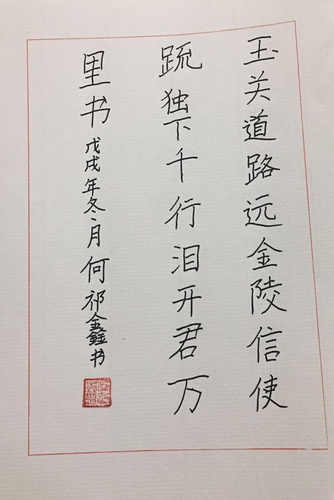 玉关道路远金陵信使
疏独下千行泪开君万
里书戊戌年冬月何祁鑫书